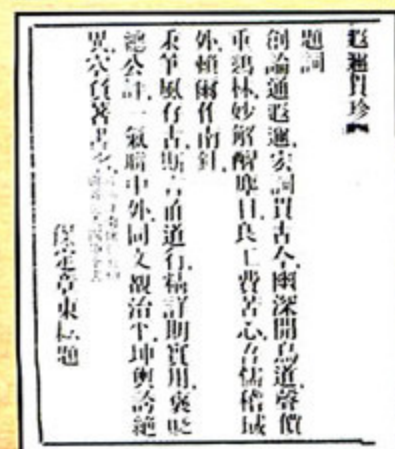 遐邇貫珍
題詞
創論通遐邇、宏詞貫古今、幽深開鳥道、聲價
重鷄林、妙解醒塵目、良工費苦心、吾儒稽域
外、賴爾作南針、
秉筆風存古、斯言直道行、精詳期實用、褒貶
總公評、一氣聯中外、同文覩治平、坤輿誇絕
異、空負著書名、
保定章東耘題